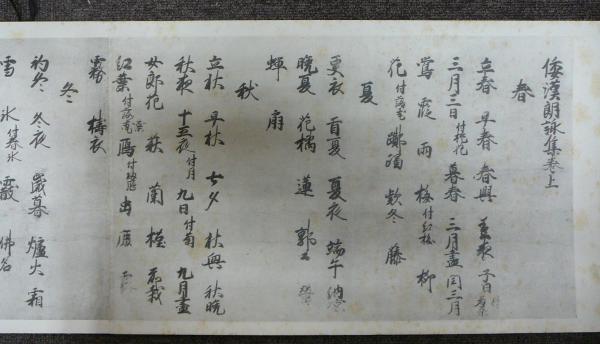 倭漢朗詠集巻上
春
立春 早春 春興 春夜 子日付若菜
三月三日付桃花 暮春 三月盡 閏三月
鶯 霞 雨 梅付紅梅 柳
花付落花 躑躅 款冬 藤
夏
更衣 首夏 夏夜 端午 納涼
晩夏 花橘 蓮 郭公 螢
蟬 扇
秋
立秋 早秋 七夕 秋興 秋晩
秋夜 十五夜付月 九日付菊 九月盡
女郎花 萩 蘭 槿 前栽
紅葉付落葉 鴈付歸鴈 虫 鹿 露
霧 擣衣
冬
初冬 冬夜 歳暮 爐火 霜
雪 氷付春氷 霰 佛名